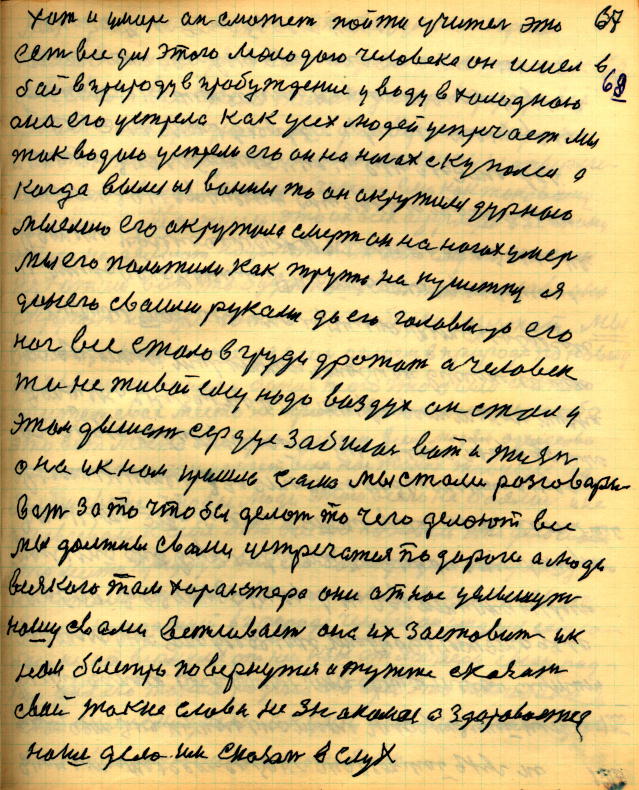 хот и умире он сможет пойти учител это 67
ест все для этого молодого человека он шел в 68
бой в природу в пробуждение у воду в холодною
она его устрела как усех людей устречает мы
так водою устрели его он на ногах скуполся а
когда вышел из ванны то он окружили дурною
мыслию его окружила смерт он на ногах умер
мы его положили как трупа на кушетку а я
до него своими руками до его головы до его
ног все стало в груди дрожат а человек
то не живой ему надо воздух он стал у
этом дышат сердце забилос вот и жизн
она ик нам пришла сама мы стали розговари
ват за то чтобы делот то чего делоют все
мы должны свами устречатся по дороги а люди
всякого там характера они от нас услышут
нашу свами ветливаст она их заставит ик
нам быстро повернутся и тутже сказат
свой такие слова не знакомое а здаровоется
наше дело им сказат в слух